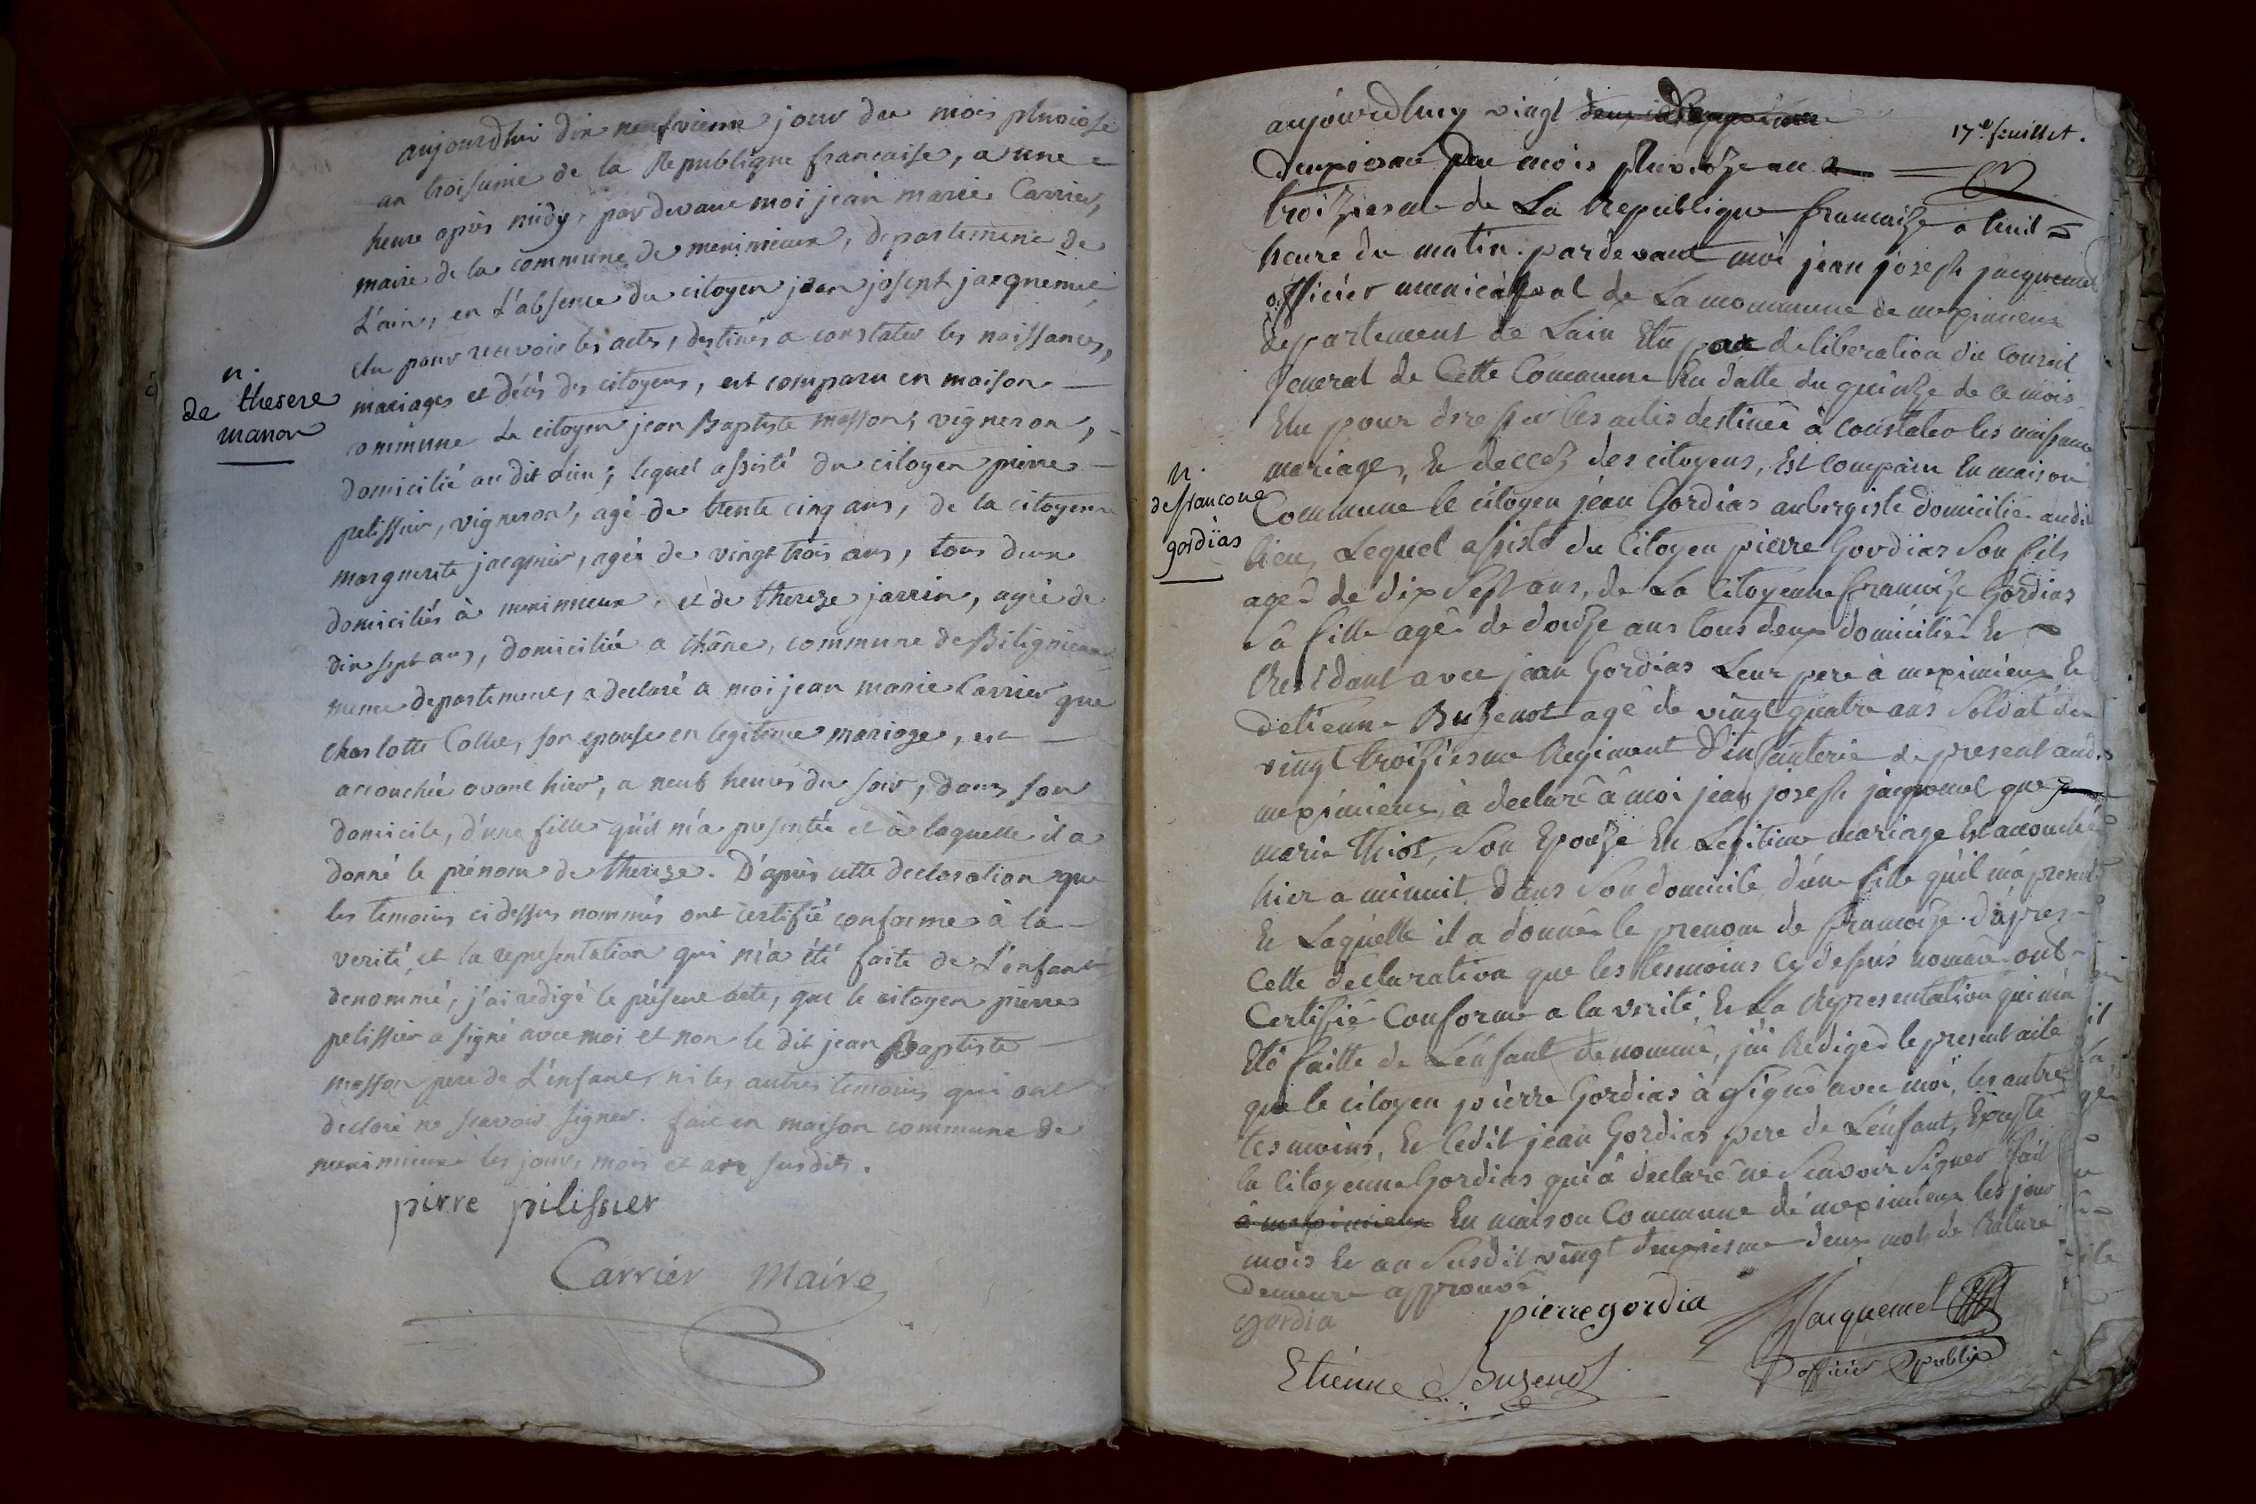 aujourdhui dix neufvieme jour du mois pluviose
an troisieme de la Republique francaise, a une
heure après midy, pardevant moi jean marie Carrier,
maire de la commune de meximieux, departement de
L'ain, en L'absence du citoyen jean joseph jacquemet
elu pour recevoir les actes, destinés a constater les naissances,
mariages et décés des citoyens, est comparu en maison
commune Le citoyen jean Baptiste masson, vigneron,
domicilié au dit lieu; lequel assisté du citoyen pierre
pelissier, vigneron, agé de trente cinq ans, de la citoyenne
marguerite jacquier, agée de vingt trois ans, tous deux
domiciliés à meximieux, et de thereze jarrin, agée de
dix sept ans, domiciliée a thâne, commune de Bilignieux
meme departement, a declaré a moi jean marie Carrier que
Charlotte Collet, son epouse en legitime mariage, est
accouchée avant hier, a neuf heures du soir, dans son
domicile, d'une fille qu'il m'a presentée et à laquelle il a
donné le prénom de thereze. D'après cette declaration que
les temoins cidessus nommés ont certifié conforme à la
verité, et la representation qui m'a été faite de L'enfant
denommé, j'ai redigé le présent acte, que le citoyen pierre
pelissier a signé avec moi et non le dit jean Baptiste
masson pere de L'enfant, ni les autres temoins qui ont
declaré ne scavoir signer. fait en maison commune de
meximieux les jour, mois et an susdits.
pirre pilissier
Carrier Maire
n.
de therese
masson
17e feuillet.
aujourdhuy vingt
deuxieme du mois pluvioze an
troiziesme de La Republique francaize a huit
heure du matin. pardevant moi jean joseph jacquemet
officier municipal de La commune de meximieux
departement de Lain Elu par deliberation du Conseil
general de Cette Commune En datte du quinze de ce mois
Elu pour dresser les actes destinée à Constater les naissances
mariages, Et deccez des citoyens, Est comparu En maison
Commune le citoyen jean Gordias aubergiste domicilié audit
lieu, Lequel assisté du Citoyen pierre Gordias Son fils
agé de dix Sept ans, de La Citoyenne francoize Gordias
sa fille agé de douze ans tous deux domicilié Et
Residant avec jean Gordias Leur pere à meximieux Et
detienne Buzenot agé de vingt quatre ans Soldat du
vingt troisiesme Regiment D'infanterie de present audit
meximieux, à declaré à moi jean joseph jacquemet que
marie thiot, Son Epouze En Legitime mariage Est accouchée
hier a minuit dans Son domicile d'une fille qu'il m'a presenté
Et Laquelle il a donné le prenom de francoize. d'apres
Cette declaration que les tesmoins cydesus nommé ont
Certifié Conforme a la verité, Et La Representation qui m'a
Eté faitte de L'enfant denommé, j'ai Redigé le present acte
que le citoyen pierre Gordias à signé avec moi, les autres
tesmoins, Et ledit jean Gordias pere de L'enfant, Excepté
la Citoyenne Gordias qui à declaré ne Scavoir Signer fait
à meximieux En maison Commune de meximieux les jour
mois Et an Susdit vingt deuxiesme deux mots de Rature
demeure approuvé
gordia
pierre gordia
Jacquemet
officier public
Etienne Buzenot
n.
de francoise
gordias